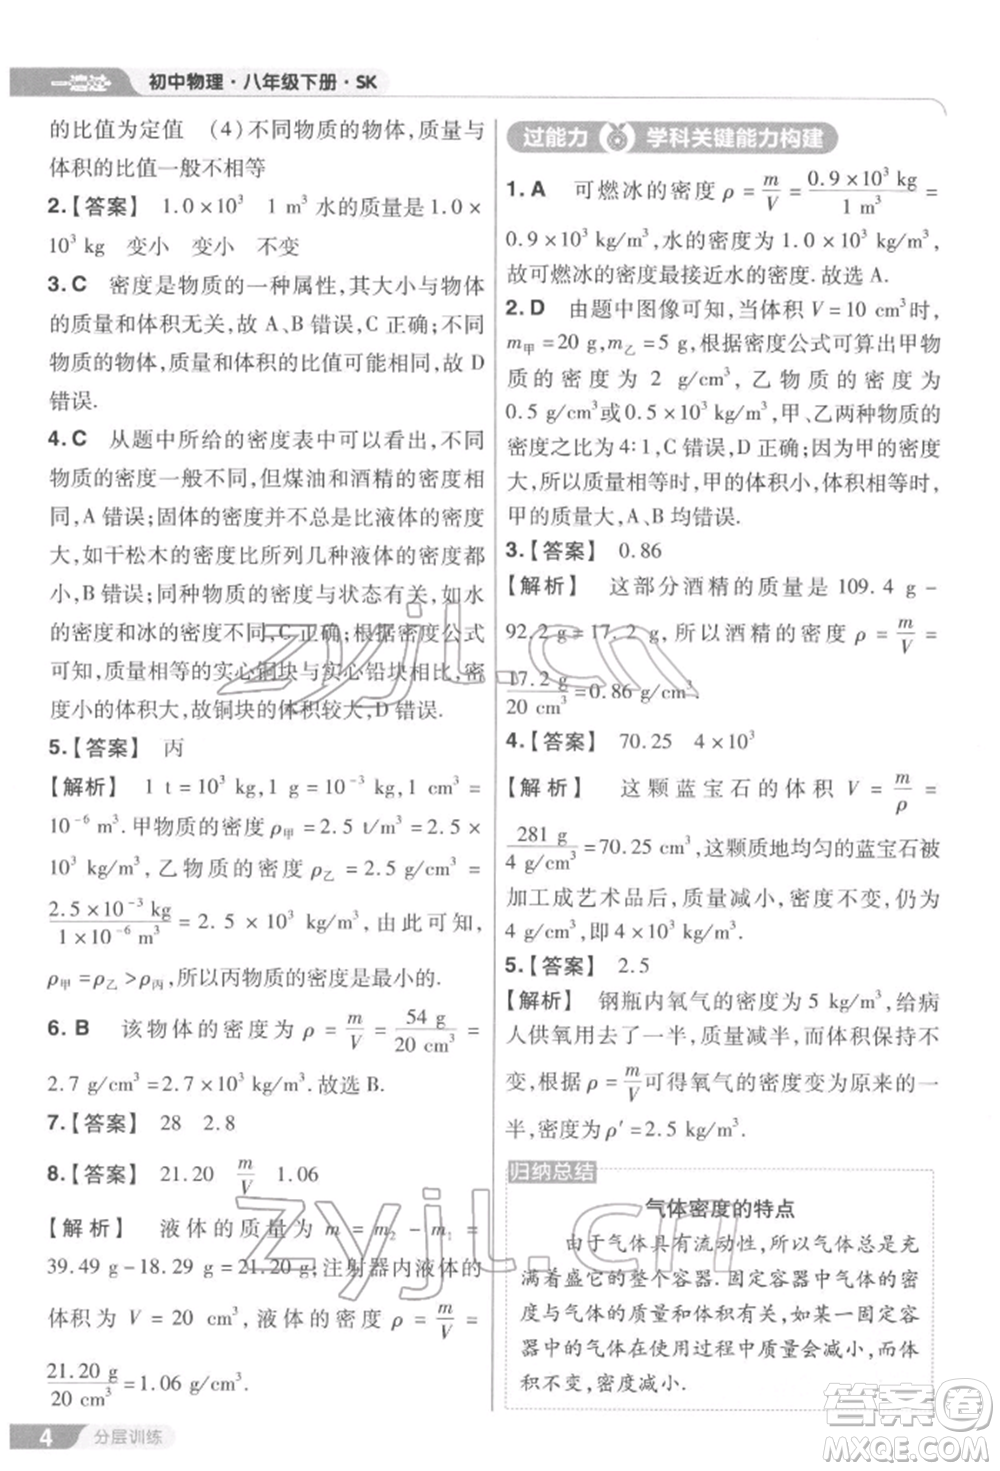 一遍过 初中物理·八年级下册·SK
的比值为定值 (4)不同物质的物体,质量与
体积的比值一般不相等
2.【答案】 1.0×10³ 1 m³ 水的质量是 1.0×
10³ kg 变小 变小 不变
3. C 密度是物质的一种属性,其大小与物体
的质量和体积无关,故 A、B 错误,C 正确;不同
物质的物体,质量和体积的比值可能相同,故 D
错误.
4. C 从题中所给的密度表中可以看出,不同
物质的密度一般不同,但煤油和酒精的密度相
同,A 错误;固体的密度并不总是比液体的密度
大,如干松木的密度比所列几种液体的密度都
小,B 错误;同种物质的密度与状态有关,如水
的密度和冰的密度不同,C 正确;根据密度公式
可知,质量相等的实心铜块与实心铅块相比,密
度小的体积大,故铜块的体积较大,D 错误.
5.【答案】 丙
【解析】 1 t=10³ kg,1 g=10⁻³ kg,1 cm³=
10⁻⁶ m³. 甲物质的密度 ρ甲=2.5 t/m³=2.5×
10³ kg/m³,乙物质的密度 ρ乙=2.5 g/cm³=
2.5×10⁻³ kg/1×10⁻⁶ m³=2.5×10³ kg/m³,由此可知,
ρ甲=ρ乙>ρ丙,所以丙物质的密度是最小的.
6. B 该物体的密度为 ρ=m/V=54 g/20 cm³=
2.7 g/cm³=2.7×10³ kg/m³. 故选 B.
7.【答案】 28 2.8
8.【答案】 21.20 m/V 1.06
【解析】 液体的质量为 m=m₂-m₁=
39.49 g-18.29 g=21.20 g;注射器内液体的
体积为 V=20 cm³,液体的密度 ρ=m/V=
21.20 g/20 cm³=1.06 g/cm³.
过能力 学科关键能力构建
1. A 可燃冰的密度 ρ=m/V=0.9×10³ kg/1 m³=
0.9×10³ kg/m³,水的密度为 1.0×10³ kg/m³,
故可燃冰的密度最接近水的密度. 故选 A.
2. D 由题中图像可知,当体积 V=10 cm³时,
m甲=20 g,m乙=5 g;根据密度公式可算出甲物
质的密度为 2 g/cm³,乙物质的密度为
0.5 g/cm³或 0.5×10³ kg/m³,甲、乙两种物质的
密度之比为 4∶1,C 错误,D 正确;因为甲的密度
大,所以质量相等时,甲的体积小,体积相等时,
甲的质量大,A、B 均错误.
3.【答案】 0.86
【解析】 这部分酒精的质量是 109.4 g-
92.2 g=17.2 g,所以酒精的密度 ρ=m/V=
17.2 g/20 cm³=0.86 g/cm³.
4.【答案】 70.25 4×10³
【解析】 这颗蓝宝石的体积 V=m/ρ=
281 g/4 g/cm³=70.25 cm³;这颗质地均匀的蓝宝石被
加工成艺术品后,质量减小,密度不变,仍为
4 g/cm³,即 4×10³ kg/m³.
5.【答案】 2.5
【解析】 钢瓶内氧气的密度为 5 kg/m³,给病
人供氧用去了一半,质量减半,而体积保持不
变,根据 ρ=m/V 可得氧气的密度变为原来的一
半,密度为 ρ′=2.5 kg/m³.
归纳总结
气体密度的特点
由于气体具有流动性,所以气体总是充
满着盛它的整个容器. 固定容器中气体的密
度与气体的质量和体积有关,如某一固定容
器中的气体在使用过程中质量减小,体积
不变,密度减小.
4 分层训练
zyjl.cn
zyjl.cn
答案圈
MXQE.COM